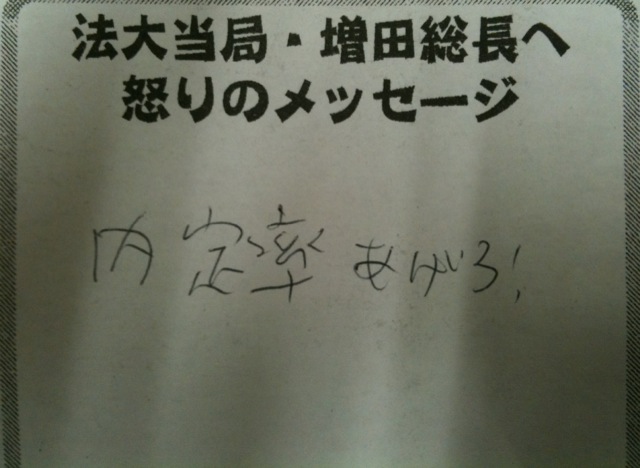 法大当局・増田総長へ
怒りのメッセージ
内定率あげろ!